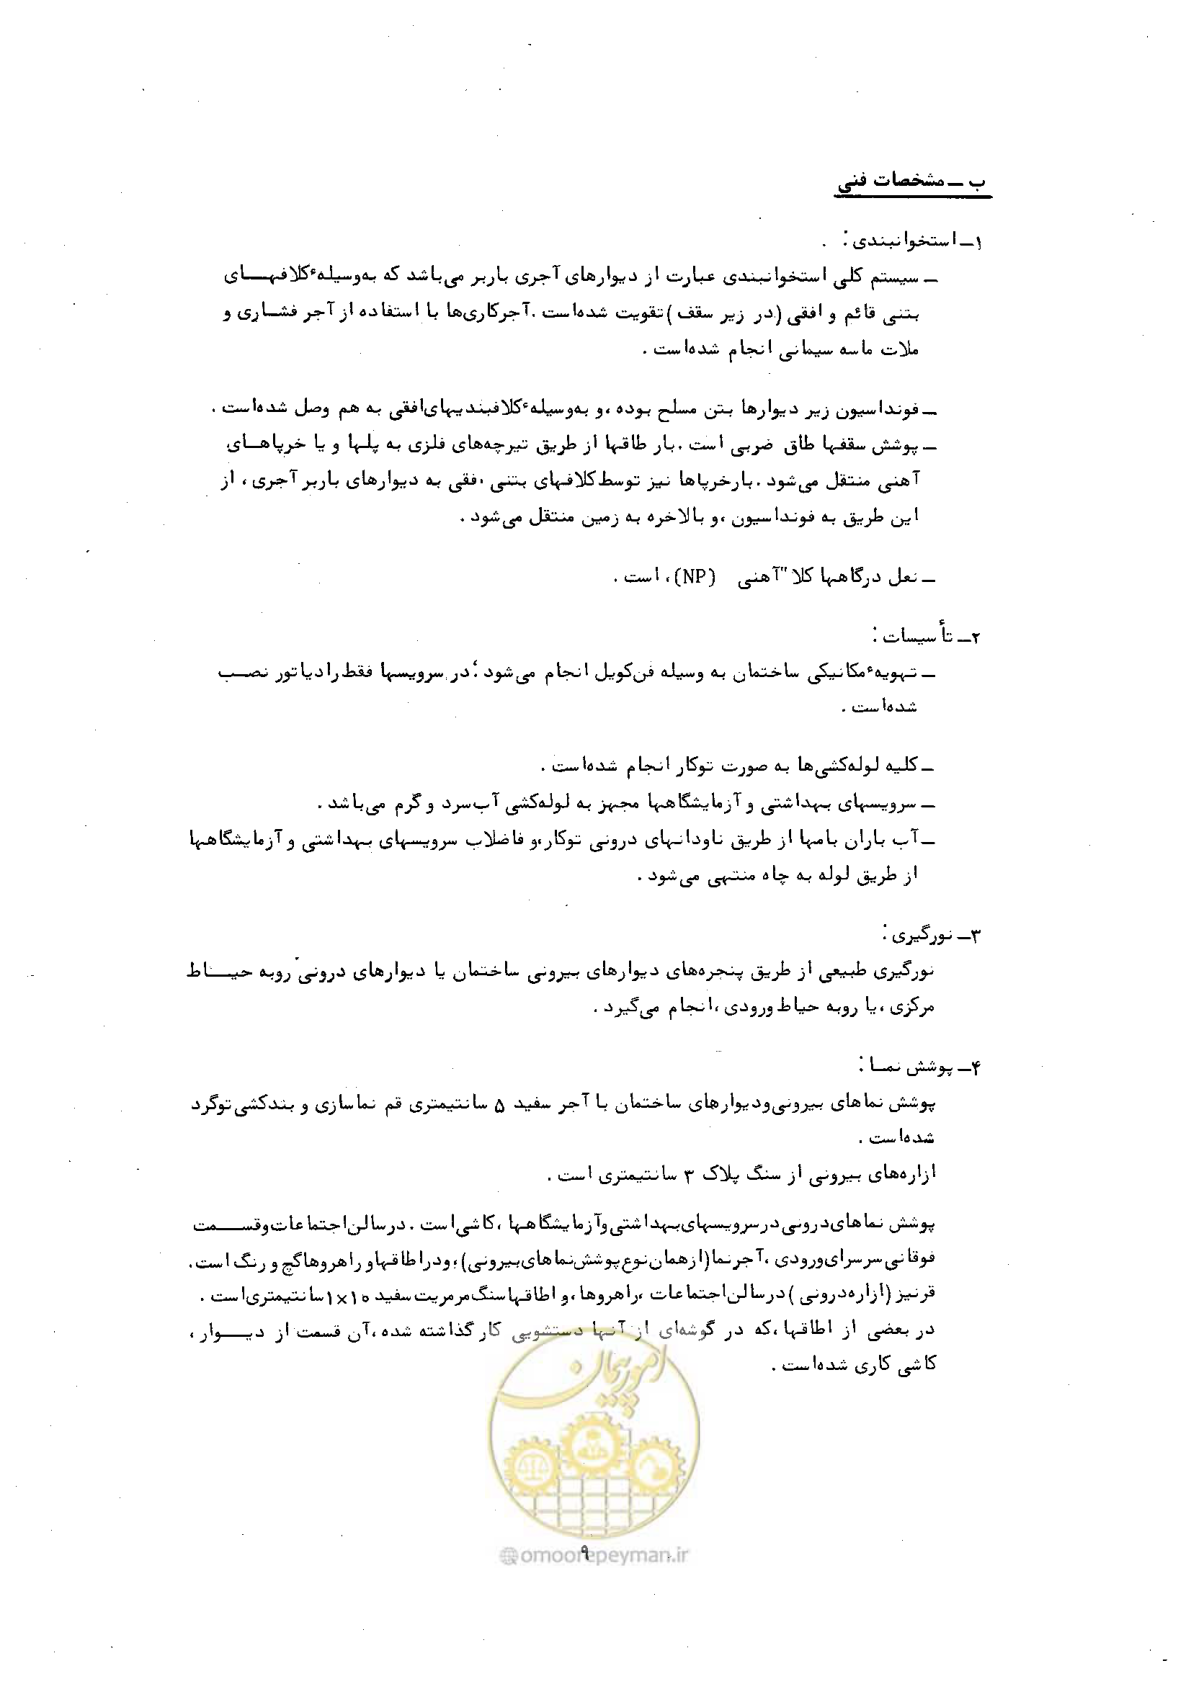 ب ــ مشخصات فنی
۱ــ استخوانبندی :
ــ سیستم کلی استخوانبندی عبارت از دیوارهای آجری باربر می‌باشد که به‌وسیلهٔ کلافهـــای
بتنی قائم و افقی (در زیر سقف) تقویت شده‌است . آجرکاری‌ها با استفاده از آجر فشــاری و
ملات ماسه سیمانی انجام شده‌است .
ــ فونداسیون زیر دیوارها بتن مسلح بوده ، و به‌وسیلهٔ کلافبندیهای افقی به هم وصل شده‌است .
ــ پوشش سقفها طاق ضربی است . بار طاقها از طریق تیرچه‌های فلزی به پلها و یا خرپاهــای
آهنی منتقل می‌شود . بارخرپاها نیز توسط کلافهای بتنی ،فقی به دیوارهای باربر آجری ، از
این طریق به فونداسیون ، و بالاخره به زمین منتقل می‌شود .
ــ نعل درگاهها کلا" آهنی (NP) ، است .
۲ــ تأسیسات :
ــ تهویهٔ مکانیکی ساختمان به وسیله فن‌کویل انجام می‌شود ؛ در سرویسها فقط رادیاتور نصــب
شده‌است .
ــ کلیه لوله‌کشی‌ها به صورت توکار انجام شده‌است .
ــ سرویسهای بهداشتی و آزمایشگاهها مجهز به لوله‌کشی آب‌سرد و گرم می‌باشد .
ــ آب باران بامها از طریق ناودانهای درونی توکار ، و فاضلاب سرویسهای بهداشتی و آزمایشگاهها
از طریق لوله به چاه منتهی می‌شود .
۳ــ نورگیری :
نورگیری طبیعی از طریق پنجره‌های دیوارهای بیرونی ساختمان یا دیوارهای درونی روبه حیـــاط
مرکزی ، یا روبه حیاط ورودی ، انجام می‌گیرد .
۴ــ پوشش نمـا :
پوشش نماهای بیرونی ودیوارهای ساختمان با آجر سفید ۵ سانتیمتری قم نماسازی و بندکشی توگرد
شده‌است .
ازاره‌های بیرونی از سنگ پلاک ۳ سانتیمتری است .
پوشش نماهای درونی در سرویسهای بهداشتی وآزمایشگاهها ، کاشی است . در سالن اجتماعات وقســـمت
فوقانی سرسرای ورودی ، آجرنما (ازهمان نوع پوشش نماهای بیرونی) ؛ ودر اطاقها و راهروها گچ و رنگ است .
قرنیز (ازاره درونی) در سالن اجتماعات ، راهروها ، و اطاقها سنگ مرمریت سفید ۱۰×۱ سانتیمتری است .
در بعضی از اطاقها ، که در گوشه‌ای از آنها دستشویی کار گذاشته شده ، آن قسمت از دیـــوار ،
کاشی کاری شده‌است .
امور پیمان
۹
@omoorepeyman.ir